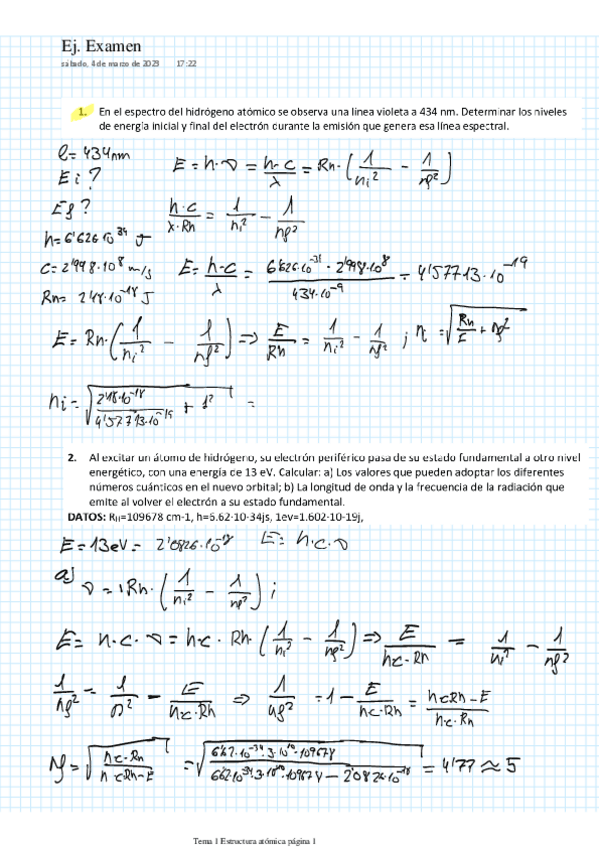 Ej. Examen
sábado, 4 de marzo de 2023 17:22
1. En el espectro del hidrógeno atómico se observa una línea violeta a 434 nm. Determinar los niveles
de energía inicial y final del electrón durante la emisión que genera esa línea espectral.
l = 434nm
E = h·ν = h·c/λ = Rh·(1/ni² - 1/nf²)
Ei?
Ef?
h·c/λ·Rh = 1/ni² - 1/nf²
h = 6'626·10³⁴ J
C = 2'998·10⁸ m/s
E = h·c/λ = 6'626·10⁻³¹ · 2'998·10⁸/434·10⁻⁹ = 4'57713·10⁻¹⁹
Rh = 2'18·10⁻¹⁸ J
E = Rh·(1/ni² - 1/nf²) => E/Rh = 1/ni² - 1/nf² ; n = √(Rh/E + nf²)
ni = √(2'18·10⁻¹⁸/4'57713·10⁻¹⁹ + 1²) =
2. Al excitar un átomo de hidrógeno, su electrón periférico pasa de su estado fundamental a otro nivel
energético, con una energía de 13 eV. Calcular: a) Los valores que pueden adoptar los diferentes
números cuánticos en el nuevo orbital; b) La longitud de onda y la frecuencia de la radiación que
emite al volver el electrón a su estado fundamental.
DATOS: RH=109678 cm-1, h=6.62·10-34js, 1ev=1.602·10-19j,
E = 13eV = 2'0826·10⁻¹⁸ E = h·c·ν
a) ν = Rh·(1/ni² - 1/nf²) ;
E = h·c·ν = h·c·Rh·(1/ni² - 1/nf²) => E/hc·Rh = 1/ni² - 1/nf²
1/nf² = 1/n² - E/hc·Rh => 1/nf² = 1 - E/hc·Rh = hcRh-E/hc·Rh
nf = √(hc·Rh/hcRh-E) = √(6'62·10⁻³⁴·3·10¹⁰·109678/6'62·10³⁴·3·10¹⁰·109678 - 2'0826·10⁻¹⁸) = 4'77 ≈ 5
Tema 1 Estructura atómica página 1